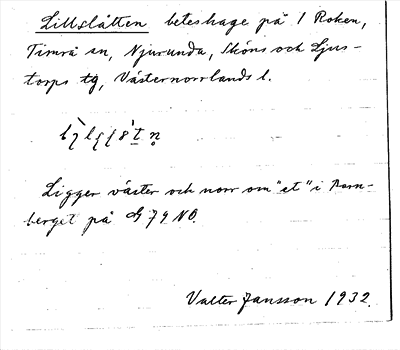 Lillslåtten beteshage på 1 Roken,
Timrå sn, Njurunda, Sköns och Ljus-
torps tg, Västernorrlands l.
Ligger väster och norr om "et" i
berget på G 79 NO.
Valter Jansson 1932.